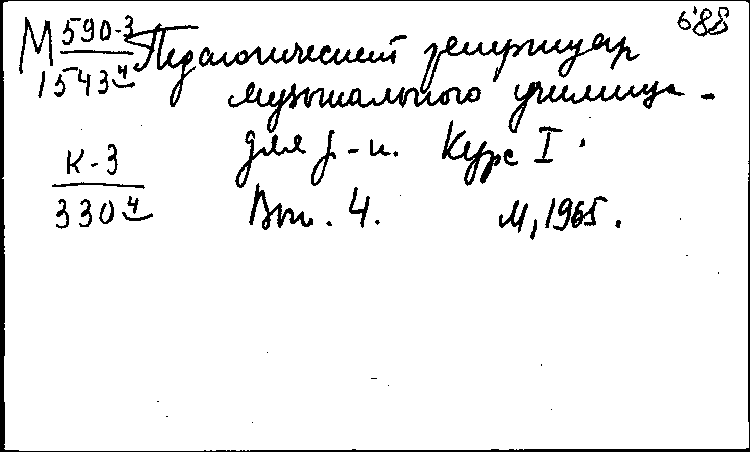 688
М 590-3 Педагогический репертуар
1543 ч музыкального училища -
для ф-п. Курс I.
К-3
330 ч Вып. 4. М, 1965.